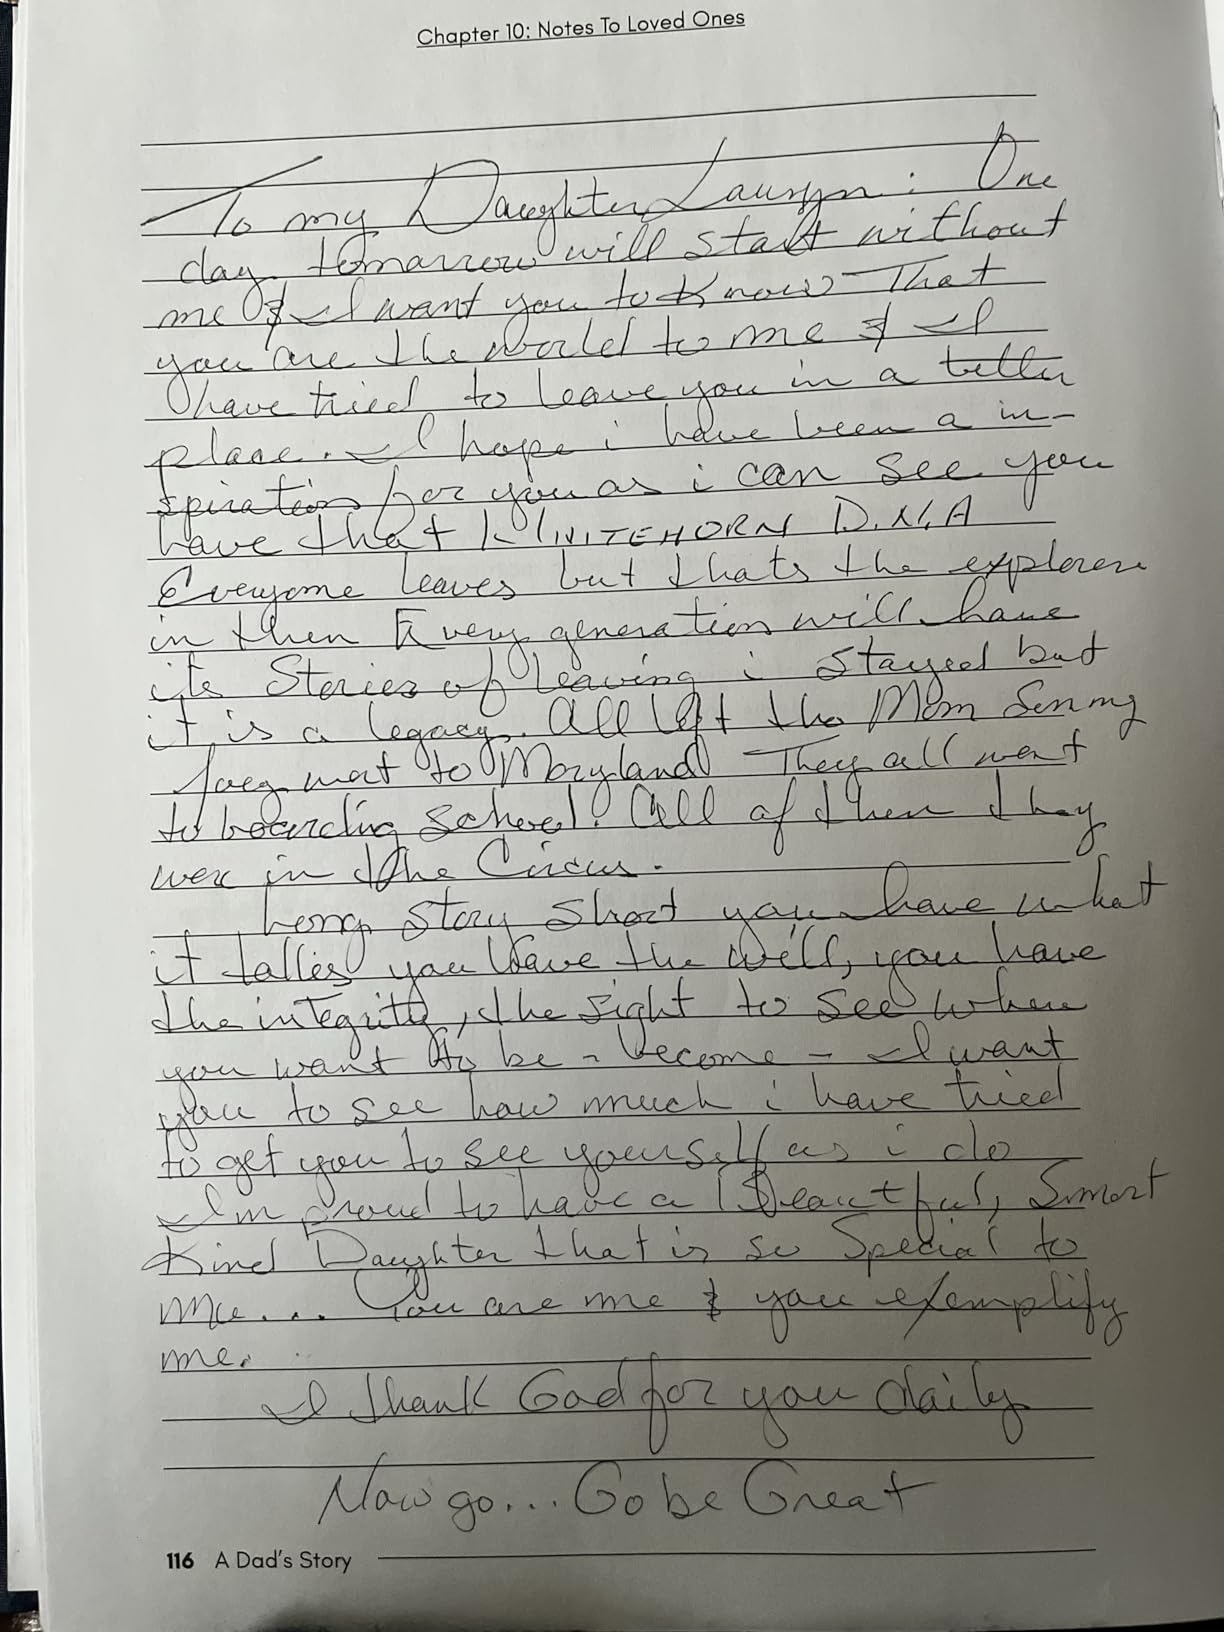 Chapter 10: Notes To Loved Ones
To my Daughter Lauryn: One
day tomarrow will start without
me & I want you to Know That
you are the world to me & I
have tried to leave you in a better
place. I hope i have been a in-
spiration for you as i can see you
have that WHITEHORN D.N.A
Everyone leaves but thats the explorer
in them Every generation will have
its Stories of leaving i stayed but
it is a legacy. All left the Mom
Joey went to Maryland They all went
to boarding school! All of them they
were in the Circus.
Long story short you have what
it takes you have the will, you have
the integrity, the sight to see where
you want to be - become - I want
you to see how much i have tried
to get you to see yourself as i do
I'm proud to have a Beautful, Smart
Kind Daughter that is so Special to
me... You are me & you exemplify
me.
I thank God for you daily
Now go... Go be Great
116 A Dad's Story